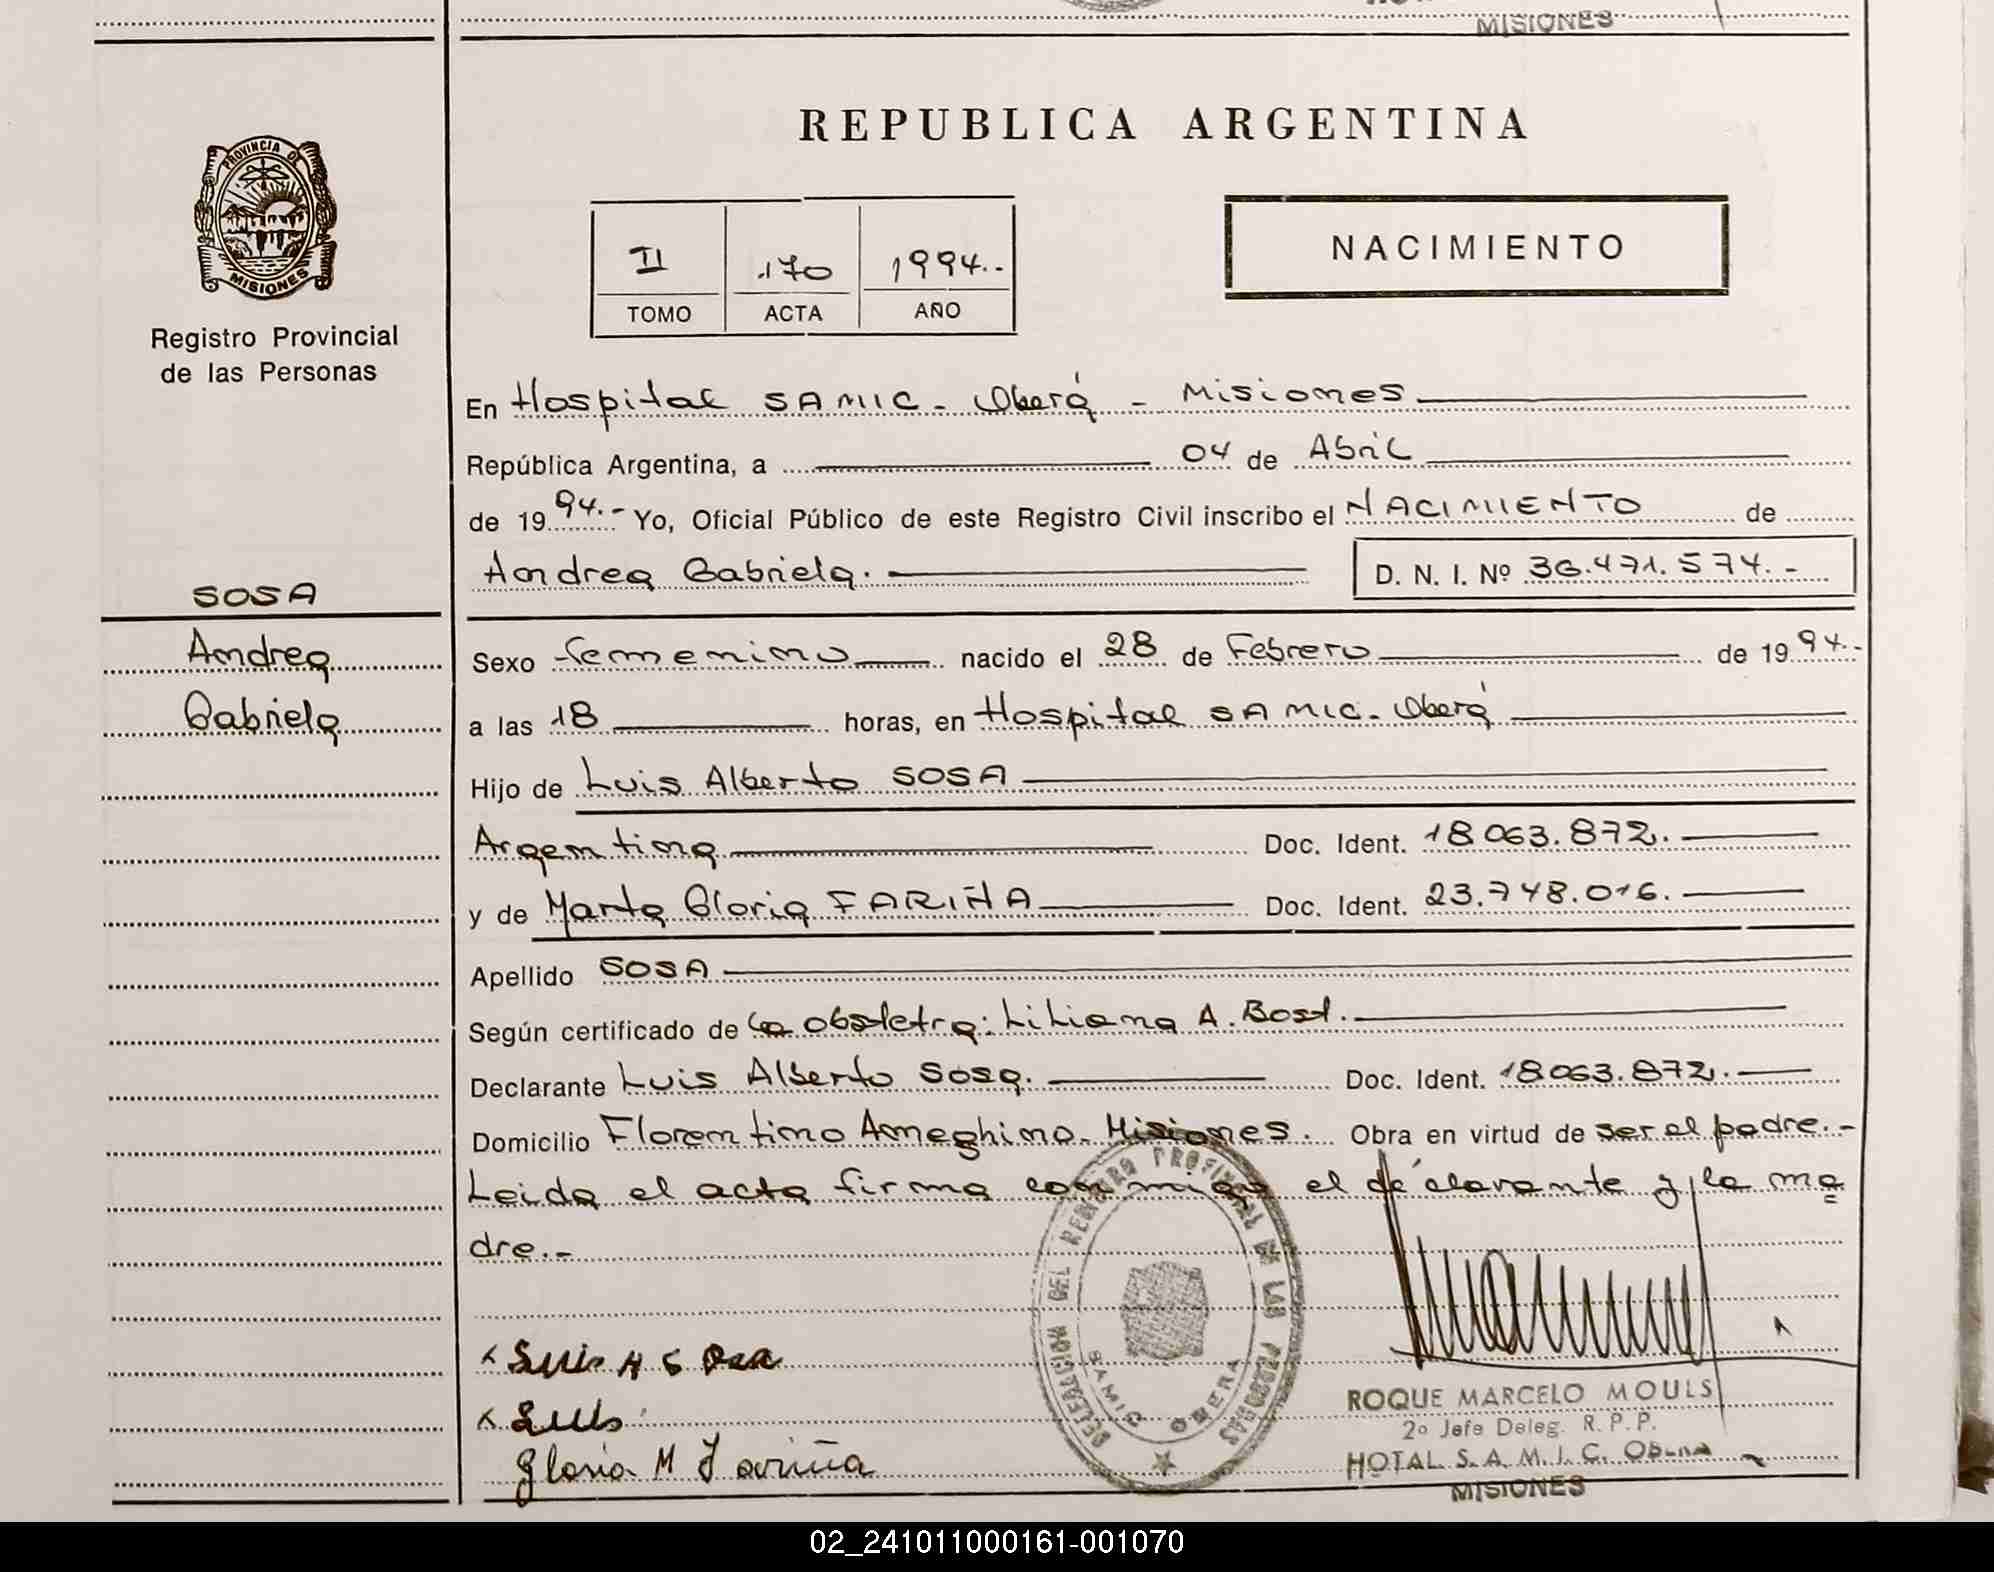 MISIONES
REPUBLICA ARGENTINA
PROVINCIA DE
MISIONES
Registro Provincial
de las Personas
II 170 1994.-
TOMO ACTA AÑO
NACIMIENTO
En Hospital SAMIC - Oberá - Misiones
República Argentina, a 04 de Abril
de 19 94.- Yo, Oficial Público de este Registro Civil inscribo el NACIMIENTO de
Andrea Gabriela. D. N. I. Nº 36.471.574.-
SOSA
Andrea
Gabriela
Sexo femenino nacido el 28 de Febrero de 19 94.-
a las 18 horas, en Hospital SAMIC - Oberá
Hijo de Luis Alberto SOSA
Argentina Doc. Ident. 18.063.872.
y de Marta Gloria FARIÑA Doc. Ident. 23.748.016.
Apellido SOSA
Según certificado de la obstetra: Liliana A. Bost.
Declarante Luis Alberto Sosa. Doc. Ident. 18.063.872.
Domicilio Florentino Ameghino. Misiones. Obra en virtud de ser el padre.-
Leida el acta firma conmigo el declarante y la ma
dre.-
DELEGACION DEL REGISTRO PROVINCIAL DE LAS PERSONAS
SAMIC OBERA
x Luis A Sosa
x Luis
Gloria M Fariña
ROQUE MARCELO MOULS
2º Jefe Deleg. R. P. P.
HOTAL S. A. M. I. C. Oberá
MISIONES
02_241011000161-001070